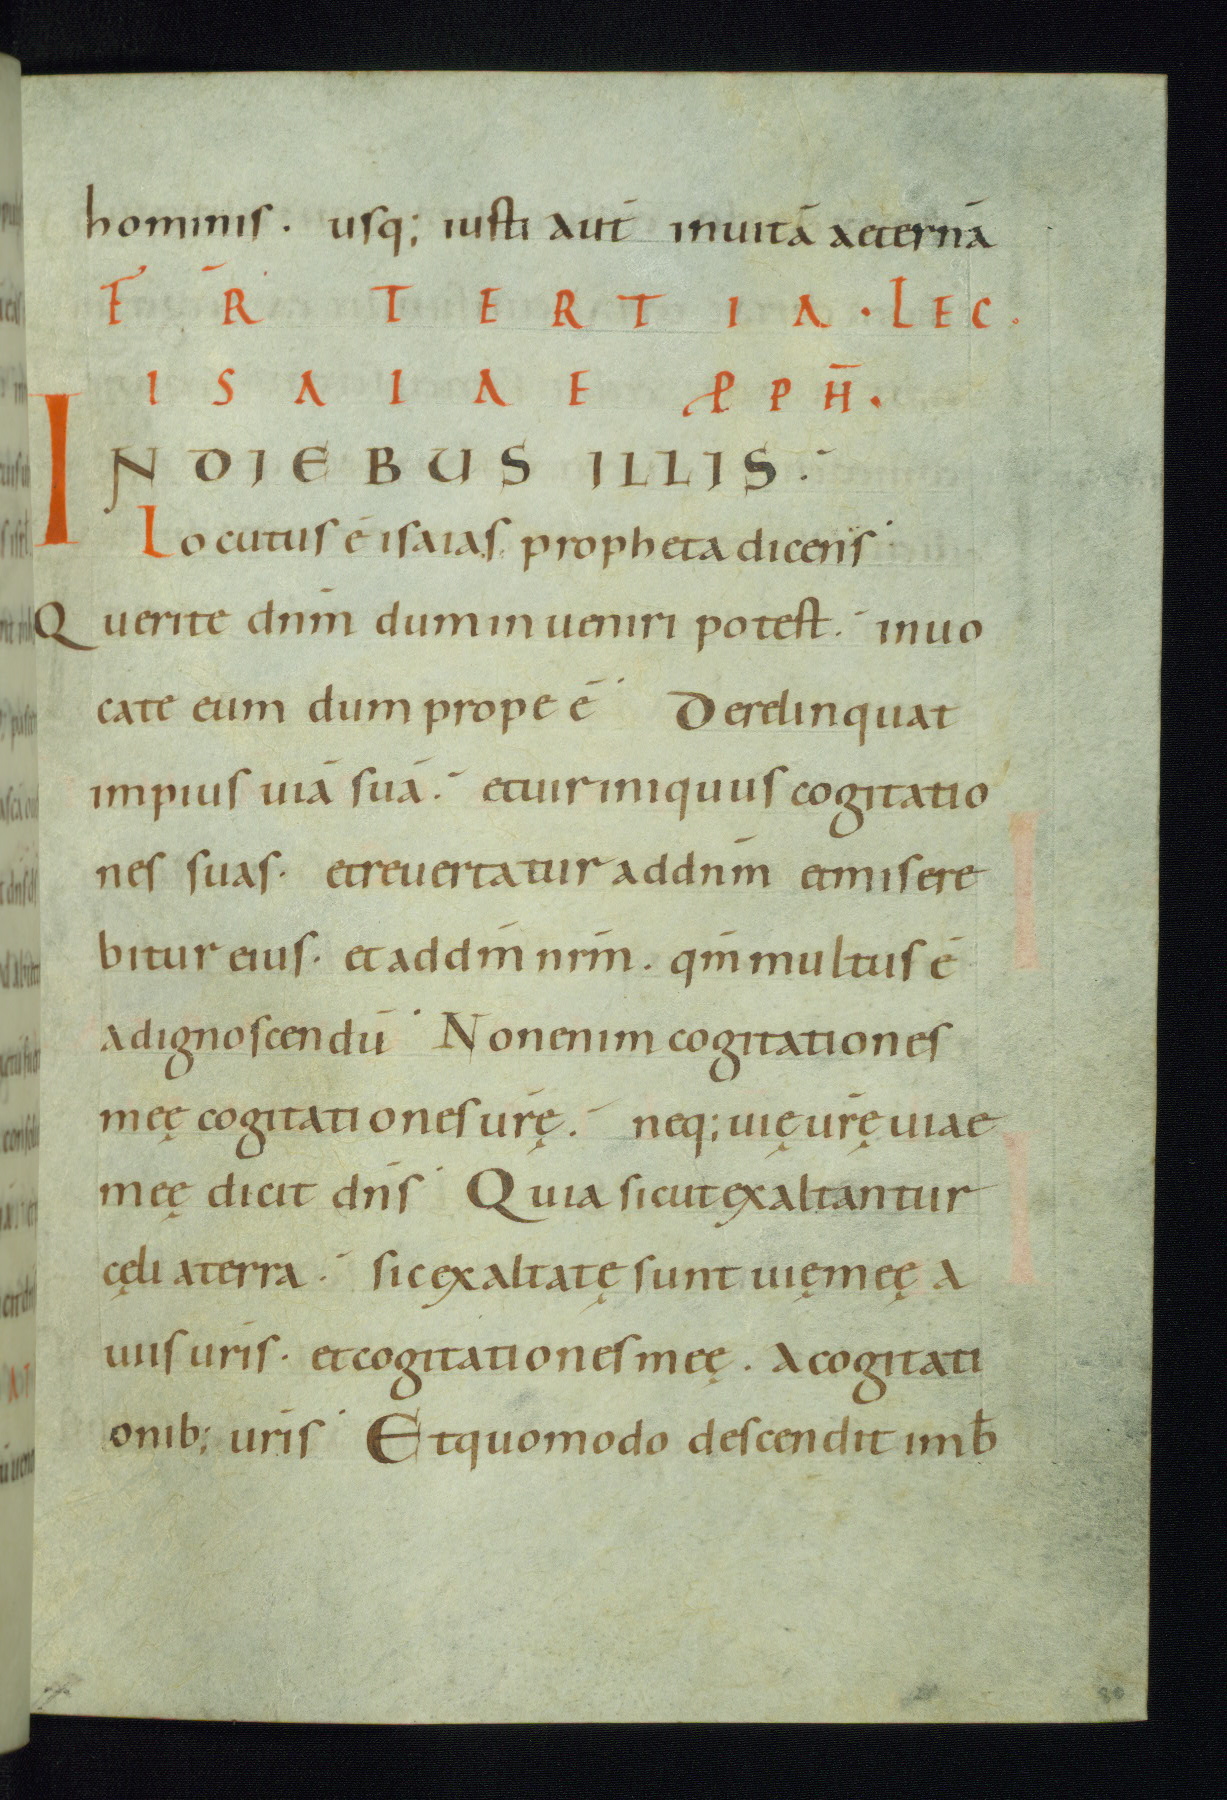 hominis . usq; iusti aut̄ inuitā aeternā
F̄ R̄ TERTIA . LEC .
ISAIAE PPH̄ .
IN DIEBUS ILLIS .
Locutus ē isaias propheta dicens
Querite dnm̄ dum inueniri potest . inuo
cate eum dum prope ē Derelinquat
impius uiā suā . et uir iniquus cogitatio
nes suas . et reuertatur ad dnm̄ et misere
bitur eius . et ad dm̄ nrm̄ . qm̄ multus ē
ad ignoscendū Non enim cogitationes
meę cogitationes ur̄ę . neq; uię ur̄ę uiae
meę dicit dn̄s Quia sicut exaltantur
cęli a terra . sic exaltatę sunt uię meę a
uiis uris . et cogitationes meę . a cogitati
onib; uris Et quomodo descendit imb̄